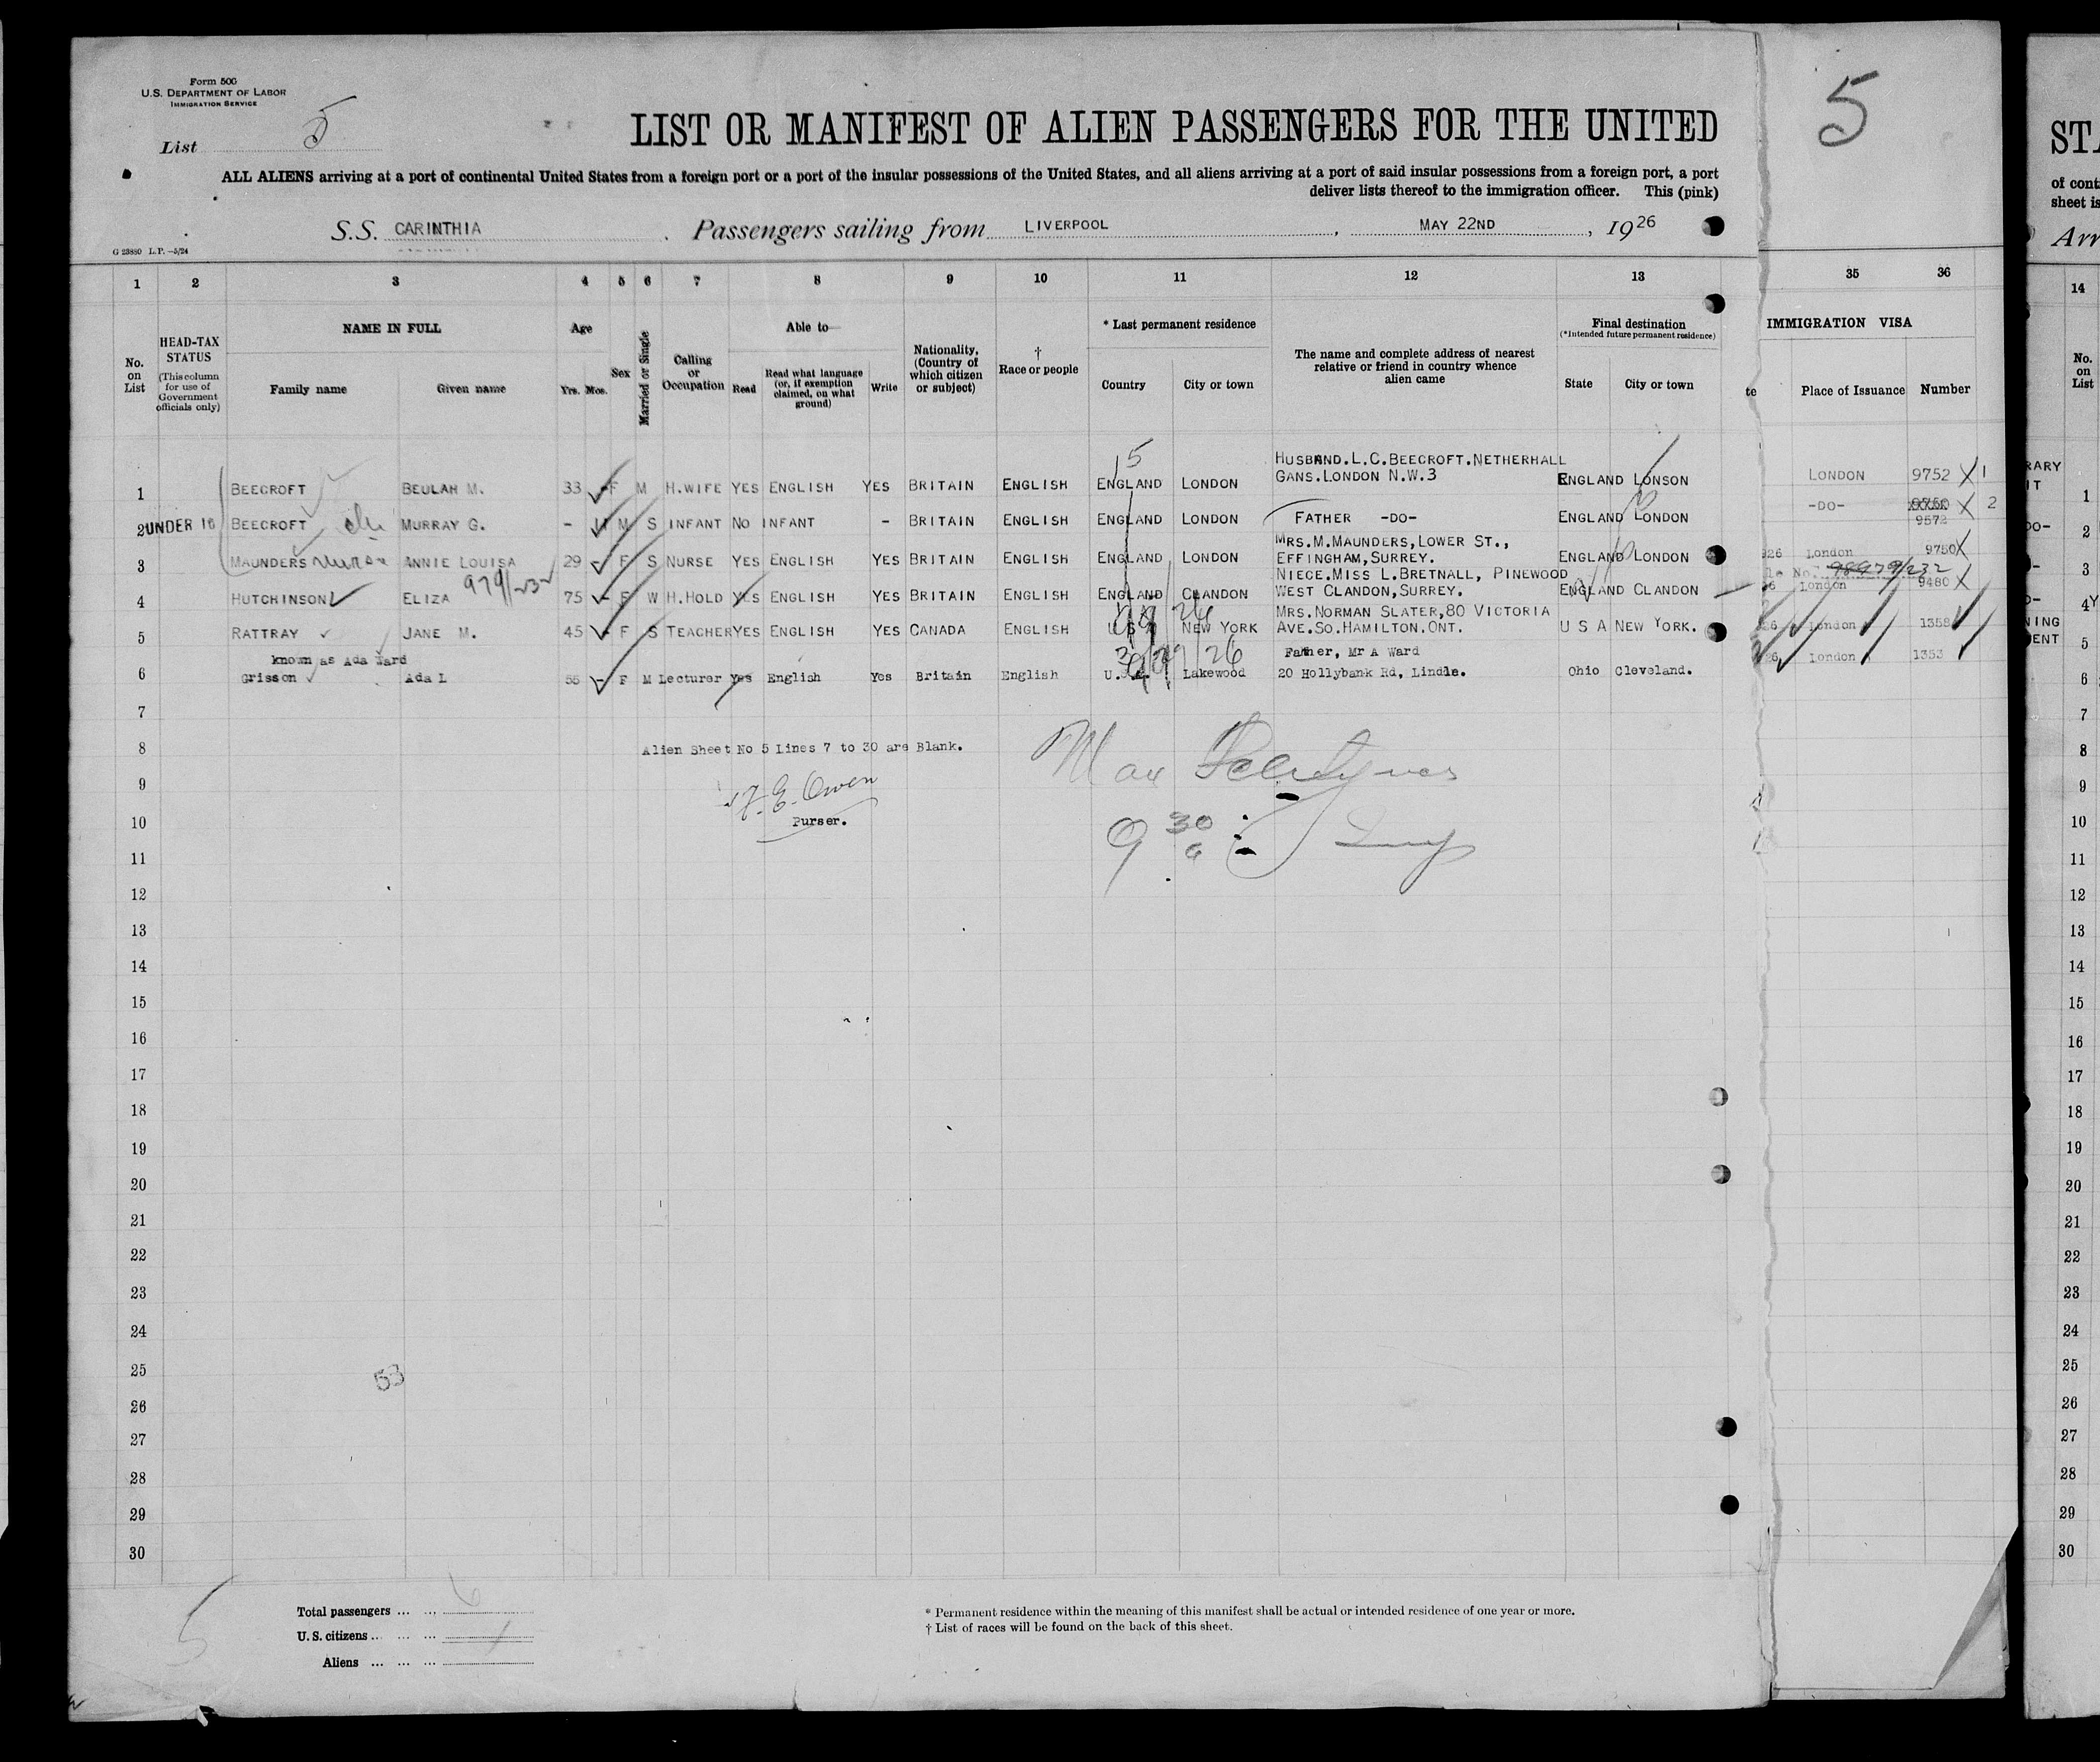 Form 500
U.S. DEPARTMENT OF LABOR
IMMIGRATION SERVICE
List 5
5
LIST OR MANIFEST OF ALIEN PASSENGERS FOR THE UNITED
STA
ALL ALIENS arriving at a port of continental United States from a foreign port or a port of the insular possessions of the United States, and all aliens arriving at a port of said insular possessions from a foreign port, a port
deliver lists thereof to the immigration officer. This (pink)
of cont
sheet is
S.S. CARINTHIA . Passengers sailing from LIVERPOOL , MAY 22ND , 1926
Arr
G 23880 L.P.—5/24
1 2 3 4 5 6 7 8 9 10 11 12 13 35 36 14
No. on List
HEAD-TAX STATUS
(This column for use of Government officials only)
NAME IN FULL
Family name Given name
Age
Yrs. Mos.
Sex
Married or Single
Calling or Occupation
Able to—
Read
Read what language (or, if exemption claimed, on what ground)
Write
Nationality, (Country of which citizen or subject)
† Race or people
* Last permanent residence
Country City or town
The name and complete address of nearest relative or friend in country whence alien came
Final destination
(*Intended future permanent residence)
State City or town
te
IMMIGRATION VISA
Place of Issuance Number
No. on List
15
HUSBAND.L.C.BEECROFT.NETHERHALL
1 BEECROFT BEULAH M. 33 - F M H.WIFE YES ENGLISH YES BRITAIN ENGLISH ENGLAND LONDON GANS.LONDON N.W.3 ENGLAND LONSON LONDON 9752 X 1
2 UNDER 16 BEECROFT MURRAY G. - 11 M S INFANT NO INFANT - BRITAIN ENGLISH ENGLAND LONDON FATHER -DO- ENGLAND LONDON -DO- 9750 X 2
9572
MRS.M.MAUNDERS,LOWER ST.,
3 MAUNDERS Nurse ANNIE LOUISA 29 - F S NURSE YES ENGLISH YES BRITAIN ENGLISH ENGLAND LONDON EFFINGHAM,SURREY. ENGLAND LONDON 926 London 9750 X
979/232
NIECE.MISS L.BRETNALL, PINEWOOD
4 HUTCHINSON ELIZA 75 - F W H.HOLD YES ENGLISH YES BRITAIN ENGLISH ENGLAND CLANDON WEST CLANDON,SURREY. ENGLAND CLANDON 26 London 9480 X
MRS.NORMAN SLATER,80 VICTORIA
5 RATTRAY JANE M. 45 - F S TEACHER YES ENGLISH YES CANADA ENGLISH U S A NEW YORK AVE.SO.HAMILTON.ONT. U S A NEW YORK. 26 London 1358
known as Ada Ward
Father, Mr A Ward
6 Grisson Ada L 55 - F M Lecturer Yes English Yes Britain English U. Lakewood 20 Hollybank Rd, Lindle. Ohio Cleveland. 26 London 1353
7
8 Alien Sheet No 5 Lines 7 to 30 are Blank.
9 F. E. Owen
10 Purser.
9 30
11
12
13
14
15
16
17
18
19
20
21
22
23
24
25
53
26
27
28
29
30
Total passengers ... ... 6
U.S. citizens ... ... ...
Aliens ... ... ...
5
* Permanent residence within the meaning of this manifest shall be actual or intended residence of one year or more.
† List of races will be found on the back of this sheet.